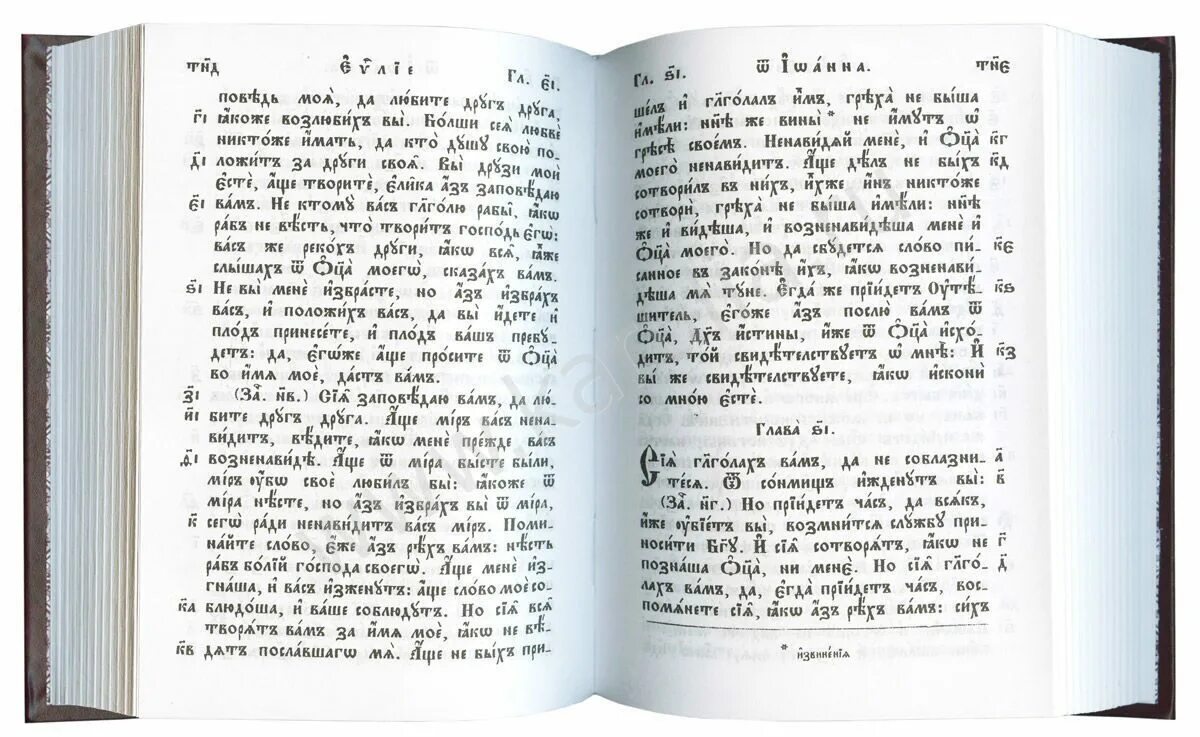 тн҃д
Є҆ѵⷢ҇лїе
Гл. є҃і.
повѣдь моѧ̀, да лю́бите дрꙋ́гъ дрꙋ́га,
г҃і ꙗ҆́коже возлюби́хъ вы̀. Бо́лши сеѧ̀ любвѐ
никто́же и҆́мать, да кто̀ дꙋ́шꙋ свою̀ по-
д҃і ложи́тъ за дрꙋ́ги своѧ̑. Вы̀ дрꙋ́зи моѝ
є҆стѐ, а҆́ще творитѐ, є҆ли̑ка а҆́зъ заповѣ́даю
є҃і ва́мъ. Не ктомꙋ̀ ва́съ гл҃го́лю рабы̑, ꙗ҆́кѡ
ра́бъ не вѣ́сть, что̀ твори́тъ госпо́дь є҆гѡ̀:
ва́съ же реко́хъ дрꙋ́ги, ꙗ҆́кѡ всѧ̑, ꙗ҆̀же
слы́шахъ ѿ Ѻ҆ц҃а̀ моегѡ̀, сказа́хъ ва́мъ.
ѕ҃і Не вы̀ менѐ и҆збра́сте, но а҆́зъ и҆збра́хъ
ва́съ, и҆ положи́хъ ва́съ, да вы̀ и҆́дете и҆
пло́дъ принесе́те, и҆ пло́дъ ва́шъ пребꙋ́-
детъ: да, є҆гѡ́же а҆́ще про́сите ѿ Ѻ҆ц҃а̀
во и҆́мѧ моѐ, да́стъ ва́мъ.
з҃і (За́ч. н҃в.) Сїѧ̑ заповѣ́даю ва́мъ, да лю́-
и҃і бите дрꙋ́гъ дрꙋ́га. А҆́ще мі́ръ ва́съ нена-
ви́дитъ, вѣ́дите, ꙗ҆́кѡ менѐ пре́жде ва́съ
ѳ҃і возненави́дѣ. А҆́ще ѿ мі́ра бы́сте бы́ли,
мі́ръ ᲂу҆́бѡ своѐ люби́лъ бы̀: ꙗ҆́коже ѿ
мі́ра нѣ́сте, но а҆́зъ и҆збра́хъ вы̀ ѿ мі́ра,
к҃ сегѡ̀ ра́ди ненави́дитъ ва́съ мі́ръ. Поми-
на́йте сло́во, є҆́же а҆́зъ рѣ́хъ ва́мъ: нѣ́сть
ра́бъ бо́лїй го́спода своегѡ̀. А҆́ще менѐ и҆з-
гна́ша, и҆ ва́съ и҆зженꙋ́тъ: а҆́ще сло́во моѐ со-
к҃а блюдо́ша, и҆ ва́ше соблюдꙋ́тъ. Но сїѧ̑ всѧ̑
творѧ́тъ ва́мъ за и҆́мѧ моѐ, ꙗ҆́кѡ не вѣ́-
к҃в дѧтъ посла́вшагѡ мѧ̀. А҆́ще не бы́хъ при-
Гл. ѕ҃і.
ѿ І҆ѡа́нна.
тн҃е
ше́лъ и҆ гл҃го́лалъ и҆̀мъ, грѣха̀ не бы́ша
и҆мѣ́ли: нн҃ѣ же вины̀ * не и҆́мꙋтъ ѡ҆
грѣсѣ̀ свое́мъ. Ненави́дѧй менѐ, и҆ Ѻ҆ц҃а̀ к҃г
моего̀ ненави́дитъ. А҆́ще дѣ́лъ не бы́хъ к҃д
сотвори́лъ въ ни́хъ, и҆́хже и҆́нъ никто́же
сотворѝ, грѣха̀ не бы́ша и҆мѣ́ли: нн҃ѣ
же и҆ ви́дѣша, и҆ возненави́дѣша менѐ и҆
Ѻ҆ц҃а̀ моего̀. Но да сбꙋ́детсѧ сло́во пи́- к҃є
санное въ зако́нѣ и҆́хъ, ꙗ҆́кѡ возненави́-
дѣша мѧ̀ тꙋ́не. Є҆гда́ же прїи́детъ ᲂу҆тѣ́- к҃ѕ
шитель, є҆го́же а҆́зъ послю̀ ва́мъ ѿ
Ѻ҆ц҃а̀, Дх҃ъ и҆́стины, и҆́же ѿ Ѻ҆ц҃а̀ и҆схо́-
дитъ, то́й свидѣ́тельствꙋетъ ѡ҆ мнѣ̀: И҆ к҃з
вы́ же свидѣ́тельствꙋете, ꙗ҆́кѡ и҆сконѝ
со мно́ю є҆стѐ.
Глава̀ ѕ҃і.
Сїѧ̑ гл҃го́лахъ ва́мъ, да не соблазни́- а҃
тесѧ. Ѿ со́нмищъ и҆жденꙋ́тъ вы̀: в҃
(За́ч. н҃г.) Но прїи́детъ ча́съ, да всѧ́къ,
и҆́же ᲂу҆бїе́тъ вы̀, возмни́тсѧ слꙋ́жбꙋ при-
носи́ти Бг҃ꙋ. И҆ сїѧ̑ сотворѧ́тъ, ꙗ҆́кѡ не г҃
позна́ша Ѻ҆ц҃а̀, ни менѐ. Но сїѧ̑ гл҃го́- д҃
лахъ ва́мъ, да, є҆гда̀ прїи́детъ ча́съ, вос-
помѧ́нете сїѧ̑, ꙗ҆́кѡ а҆́зъ рѣ́хъ ва́мъ: си́хъ
* и҆звине́нїѧ